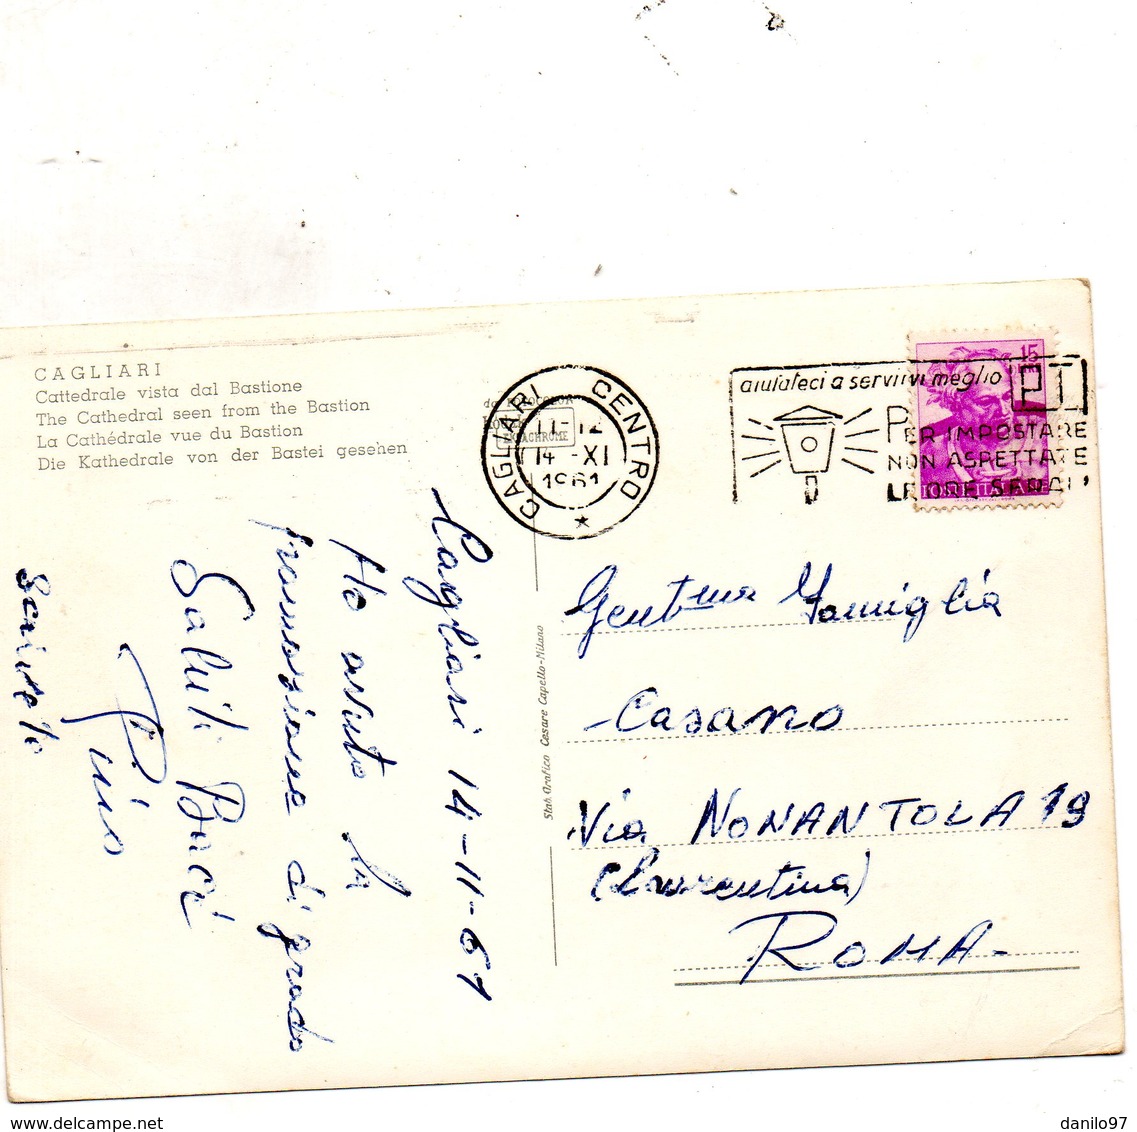 CAGLIARI
Cattedrale vista dal Bastione
The Cathedral seen from the Bastion
La Cathédrale vue du Bastion
Die Kathedrale von der Bastei gesehen
CAGLIARI CENTRO
11-12
14-XI
1961
aiutateci a servirvi meglio
PT
PER IMPOSTARE
NON ASPETTATE
LE ORE SERALI
15
Stab. Grafico Cesare Capello-Milano
Cagliari 14-11-61
Ho avuto la
promozione di grado
Saluti Baci
Pino
Gent.ma Famiglia
-Casano
Via NONANTOLA 19
(Laurentina)
ROMA-
delcampe.net
danilo97